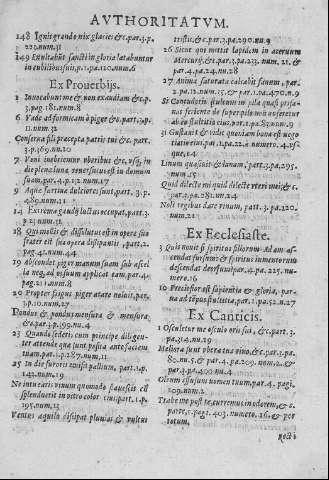 AVTHORITATVM.
148 Ignis grando nix glacies &c. par. 3. p.
223. num. 31
149 Exultabũt sancti in gloria lætabuntur
in cubilibus suis, p. 1. pa. 120. num. 6
Ex Prouerbijs.
1 Inuocabunt me & non exaudiam &c. p.
3. pag. 181. num. 8
6 Vade ad formicam ò piger &c. part. 3. p.
11. num. 32
Conserua fili præcepta patris tui &c. part.
3. p. 169. nu. 20
7 Veni inebriemur vberibus &c. vsq; in
die plenæ lunæ reuersurus est in domum
suam, par. 4. p. 12. num. 17
9 Aquæ furtiuæ dulciores sunt. part. 3. p.
489. num. 41
14 Extrema gaudij luctus occupat, part. 3.
p. 23. num. 32
18 Qui mollis & dissolutus est in opere suo
frater est sua opera dissipantis, part. 2.
pag. 41. num. 44
19 Abscondet piger manum suam sub ascel
la nec ad os suum applicat eam par. 4.
pag. 21. num. 8
20 Propter frigus piger arare noluit, par.
3. p. 10. num. 27
Pondus & pondus mensura & mensura,
&c. par. 3. p. 499. nu. 4
23 Quando sederis cum principe diligen-
ter attende quæ sunt posita ante faciem
tuam, par. 1. p. 287. num. 11
25 In die furoris tenuisti pallium, part. 1. p.
142. num. 19
Ne intuearis vinum quomodo flauescit cũ
splenduerit in vitro color eius, part. 1. p.
195. num. 13
Ventus aquilo dissipat pluuias & vultus
tristis, &c. par. 3. pa. 290. nu. 9
26 Sicut qui mittit lapidem in aceruum
Mercurij, &c. par. 3. pa. 233. num. 21. &
par. 4. pa. 24. nu. 28
27 Anima saturata calcabit fauum, par.
1. pa. 15. nu. 12. & par. 1. pa. 470. n. 9
Si contuderis stultum in pila quasi ptisa-
nas feriente de super pilo non auferetur
ab eo stultitia eius, par. 1. pa. 90. n. 3
31 Gustauit & vidit quoniam bona est nego
tiatio eius, pa. 1. pa. 119. numero. 4. vs-
que, 14
Linum quæsiuit & lanam, part. 3. pa. 295.
num. 15
Quid dilecte mi quid dilecte vteri mei, & c.
par. 3. pa. 281. num. 24
Noli regibus dare vinum, part. 3. pa. 320.
num. 21
Ex Ecclesiaste.
3 Quis nouit si spiritus filiorum Adam as-
cendat sursum & spiritus iumentorum
descendat deorsum, par. 4. pa. 225. nu-
mero. 16
10 Preciosior est sapientia & gloria, parua
ad tẽpus stultitia, par. 1. pa. 52. n. 27
Ex Canticis.
1 Osculetur me osculo oris sui, &c. part. 3.
pa. 314. nu. 29
Meliora sunt vbera tua vino, &c. par. 3. pa.
80. nu. 5. & par. 4. pa. 209. num. 2. &
par. 4. pag. 300. num. 4
Oleum effusum nomen tuum, par. 4. pagi.
309. num. 2
Trahe me post te, curremus in odorem, & c.
parte. 3. pagi. 403. numero. 16. & per
totum.